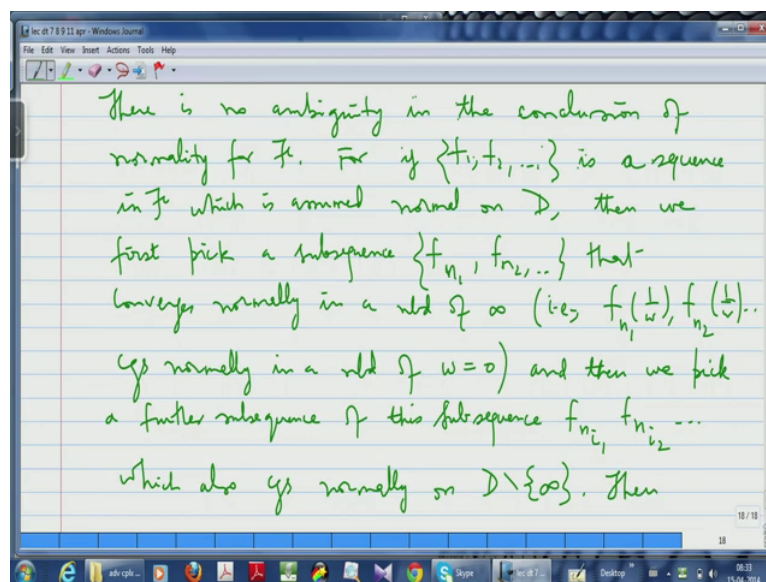 lec dt 7 8 9 11 apr - Windows Journal
File Edit View Insert Actions Tools Help
There is no ambiguity in the conclusion of
normality for ℱ. For if {f₁, f₂, ...} is a sequence
in ℱ which is assumed normal on D, then we
first pick a subsequence {f_{n₁}, f_{n₂}, ..} that
converges normally in a nbd of ∞ (i.e., f_{n₁}(1/w), f_{n₂}(1/w)..
cgs normally in a nbd of w=0) and then we pick
a further subsequence of this subsequence f_{n_{i₁}} f_{n_{i₂}} ...
which also cgs normally on D\{∞}. Then
18 / 18
18
adv cplx...
Skype
lec dt 7 ...
Desktop
08:33
15-04-2014